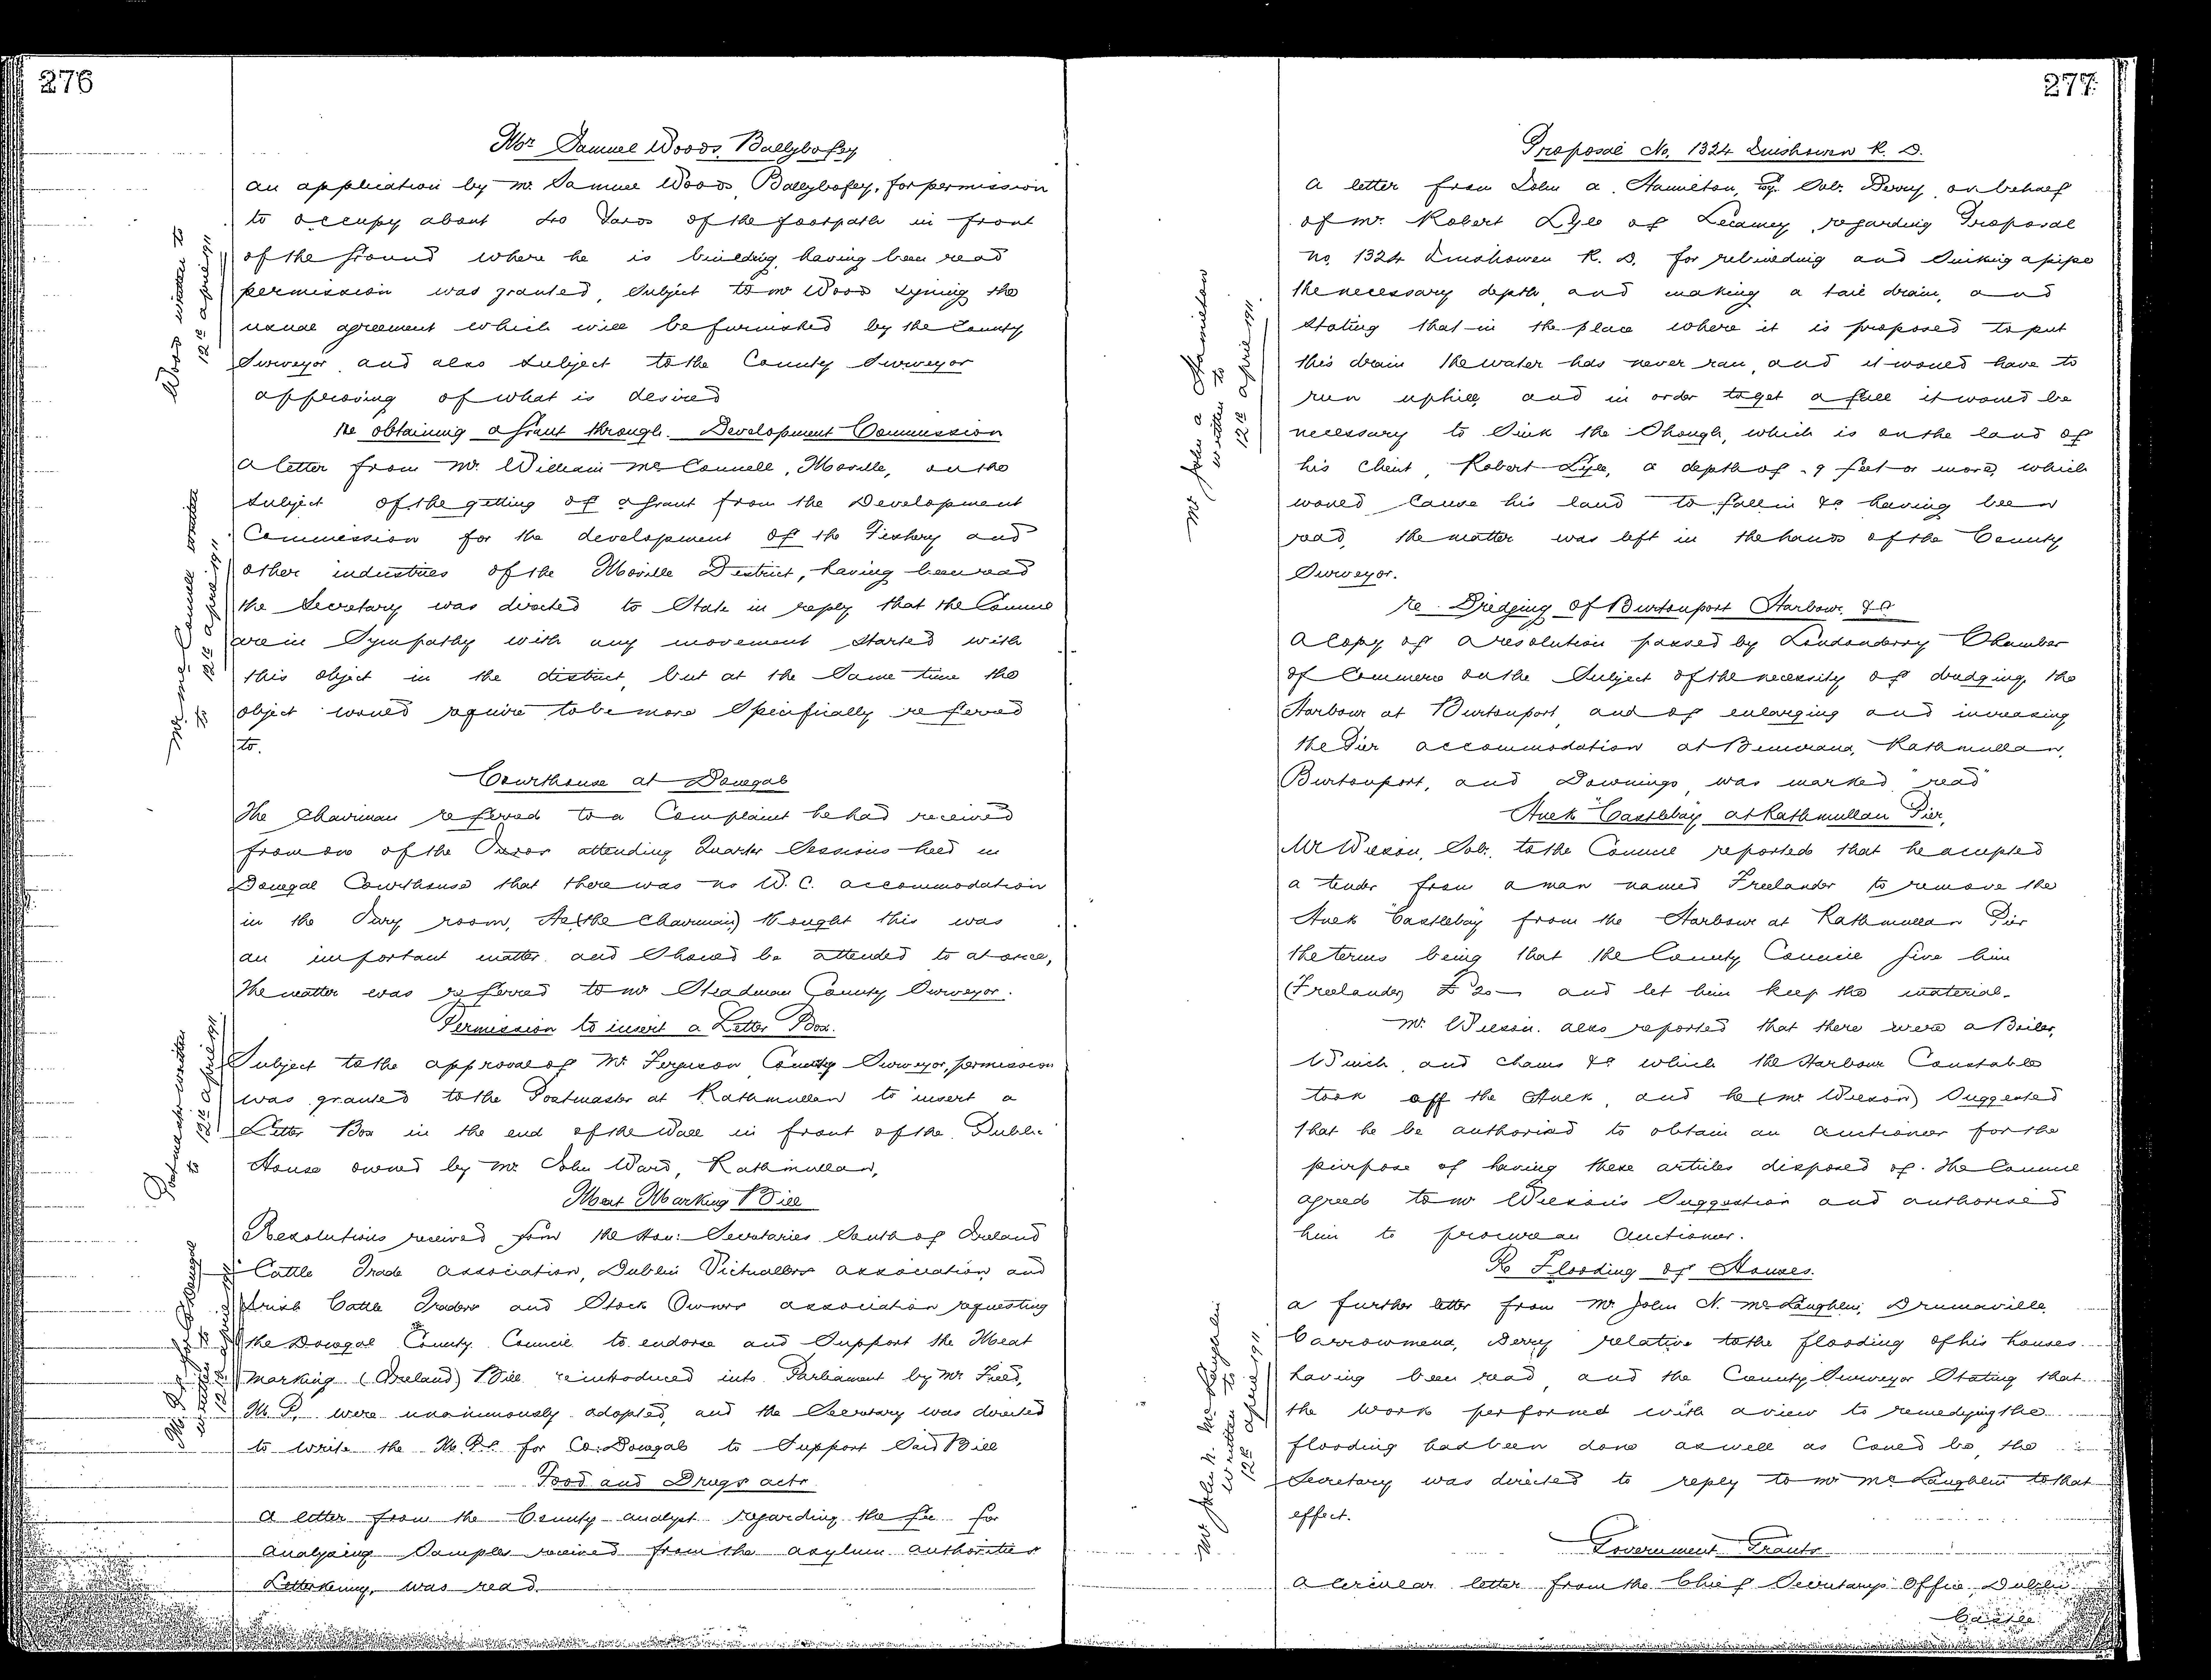 276
Mr. Samuel Woods, Ballybofey
An application by Mr. Samuel Woods, Ballybofey, for permission
to occupy about 40 Yards of the footpath in front
of the ground where he is building, having been read
permission was granted, subject to Mr Woods signing the
usual agreement which will be furnished by the County
Surveyor, and also subject to the County Surveyor
approving of what is desired
Woods written to
12th April 1911
Re obtaining a Grant through Development Commission
A letter from Mr. William McConnell, Moville, on the
subject of the getting of a Grant from the Development
Commission for the development of the Fishery and
other industries of the Moville District, having been read
the Secretary was directed to State in reply that the Council
are in Sympathy with any movement started with
this object in the district, but at the same time the
object would require to be more Specifically referred
to.
Mr. McConnell written
to 12th April 1911
Courthouse at Donegal
The Chairman referred to a Complaint he had received
from one of the Jurors attending Quarter Sessions held in
Donegal Courthouse that there was no W.C. accommodation
in the Jury room, He (the Chairman) thought this was
an important matter and Should be attended to at once,
The matter was referred to Mr Steadman County Surveyor.
Permission to insert a Letter Box.
Subject to the approval of Mr. Ferguson County Surveyor, permission
was granted to the Postmaster at Rathmullan to insert a
Letter Box in the end of the Wall in front of the Public
House owned by Mr. John Ward, Rathmullan,
Postmaster written
to 12th April 1911
Meat Marking Bill
Resolutions received from the Hon: Secretaries South of Ireland
Cattle Trade Association, Dublin Victuallers Association and
Irish Cattle Traders and Stock Owners Association requesting
the Donegal County Council to endorse and Support the Meat
Marking (Ireland) Bill reintroduced into Parliament by Mr. Field,
M.P. were unanimously adopted, and the Secretary was directed
to write the M.Ps. for Co. Donegal to Support Said Bill
M.Ps. for Co Donegal
written to
12th April 1911
Food and Drugs Acts
A letter from the County Analyst regarding the fee for
Analysing Samples received from the Asylum Authorities
Letterkenny, was read.
277.
Proposal No. 1324 Inishowen R. D.
A letter from John A. Hamilton, Esq. Solr. Derry, on behalf
of Mr. Robert Lyle of Lecamey, regarding Proposal
No. 1324 Inishowen R. D. for rebuilding and Sinking a pipe
the necessary depth, and making a tail drain, and
Stating that in the place where it is proposed to put
this drain the water has never ran, and it would have to
run uphill, and in order to get a fall it would be
necessary to Sink the Shough, which is on the land of
his Client, Robert Lyle, a depth of 9 feet or more, which
would Cause his land to fall in &c having been
read, the matter was left in the hands of the County
Surveyor.
Mr John A Hamilton
written to
12th April 1911.
re Dredging of Burtonport Harbour, &c
A Copy of a resolution passed by Londonderry Chamber
of Commerce on the Subject of the necessity of dredging the
Harbour at Burtonport, and of enlarging and increasing
the Pier accommodation at Buncrana, Rathmullan,
Burtonport, and Downings, was marked "read"
Hulk "Castlebay" at Rathmullan Pier,
Mr Wilson, Solr. to the Council reported that he accepted
a tender from a man named Freelander to remove the
Hulk "Castlebay" from the Harbour at Rathmullan Pier
the terms being that the County Council give him
(Freelander) £20 and let him keep the material.
Mr. Wilson also reported that there were a Boiler,
Winch, and chains &c which the Harbour Constable
took off the Hulk, and he (Mr Wilson) Suggested
that he be authorised to obtain an Auctioneer for the
purpose of having these articles disposed of. The Council
agreed to Mr Wilson's Suggestion and authorised
him to procure an Auctioneer.
Re Flooding of Houses.
A further letter from Mr. John N. McLaughlin, Drumaville
Carrowmena, Derry relative to the flooding of his houses
having been read, and the County Surveyor Stating that
the work performed with a view to remedying the
flooding had been done as well as Could be, the
Secretary was directed to reply to Mr McLaughlin to that
effect.
Mr John N. McLaughlin
written to
12th April 1911
Government Grants
A Circular letter from the Chief Secretary's Office, Dublin
Castle